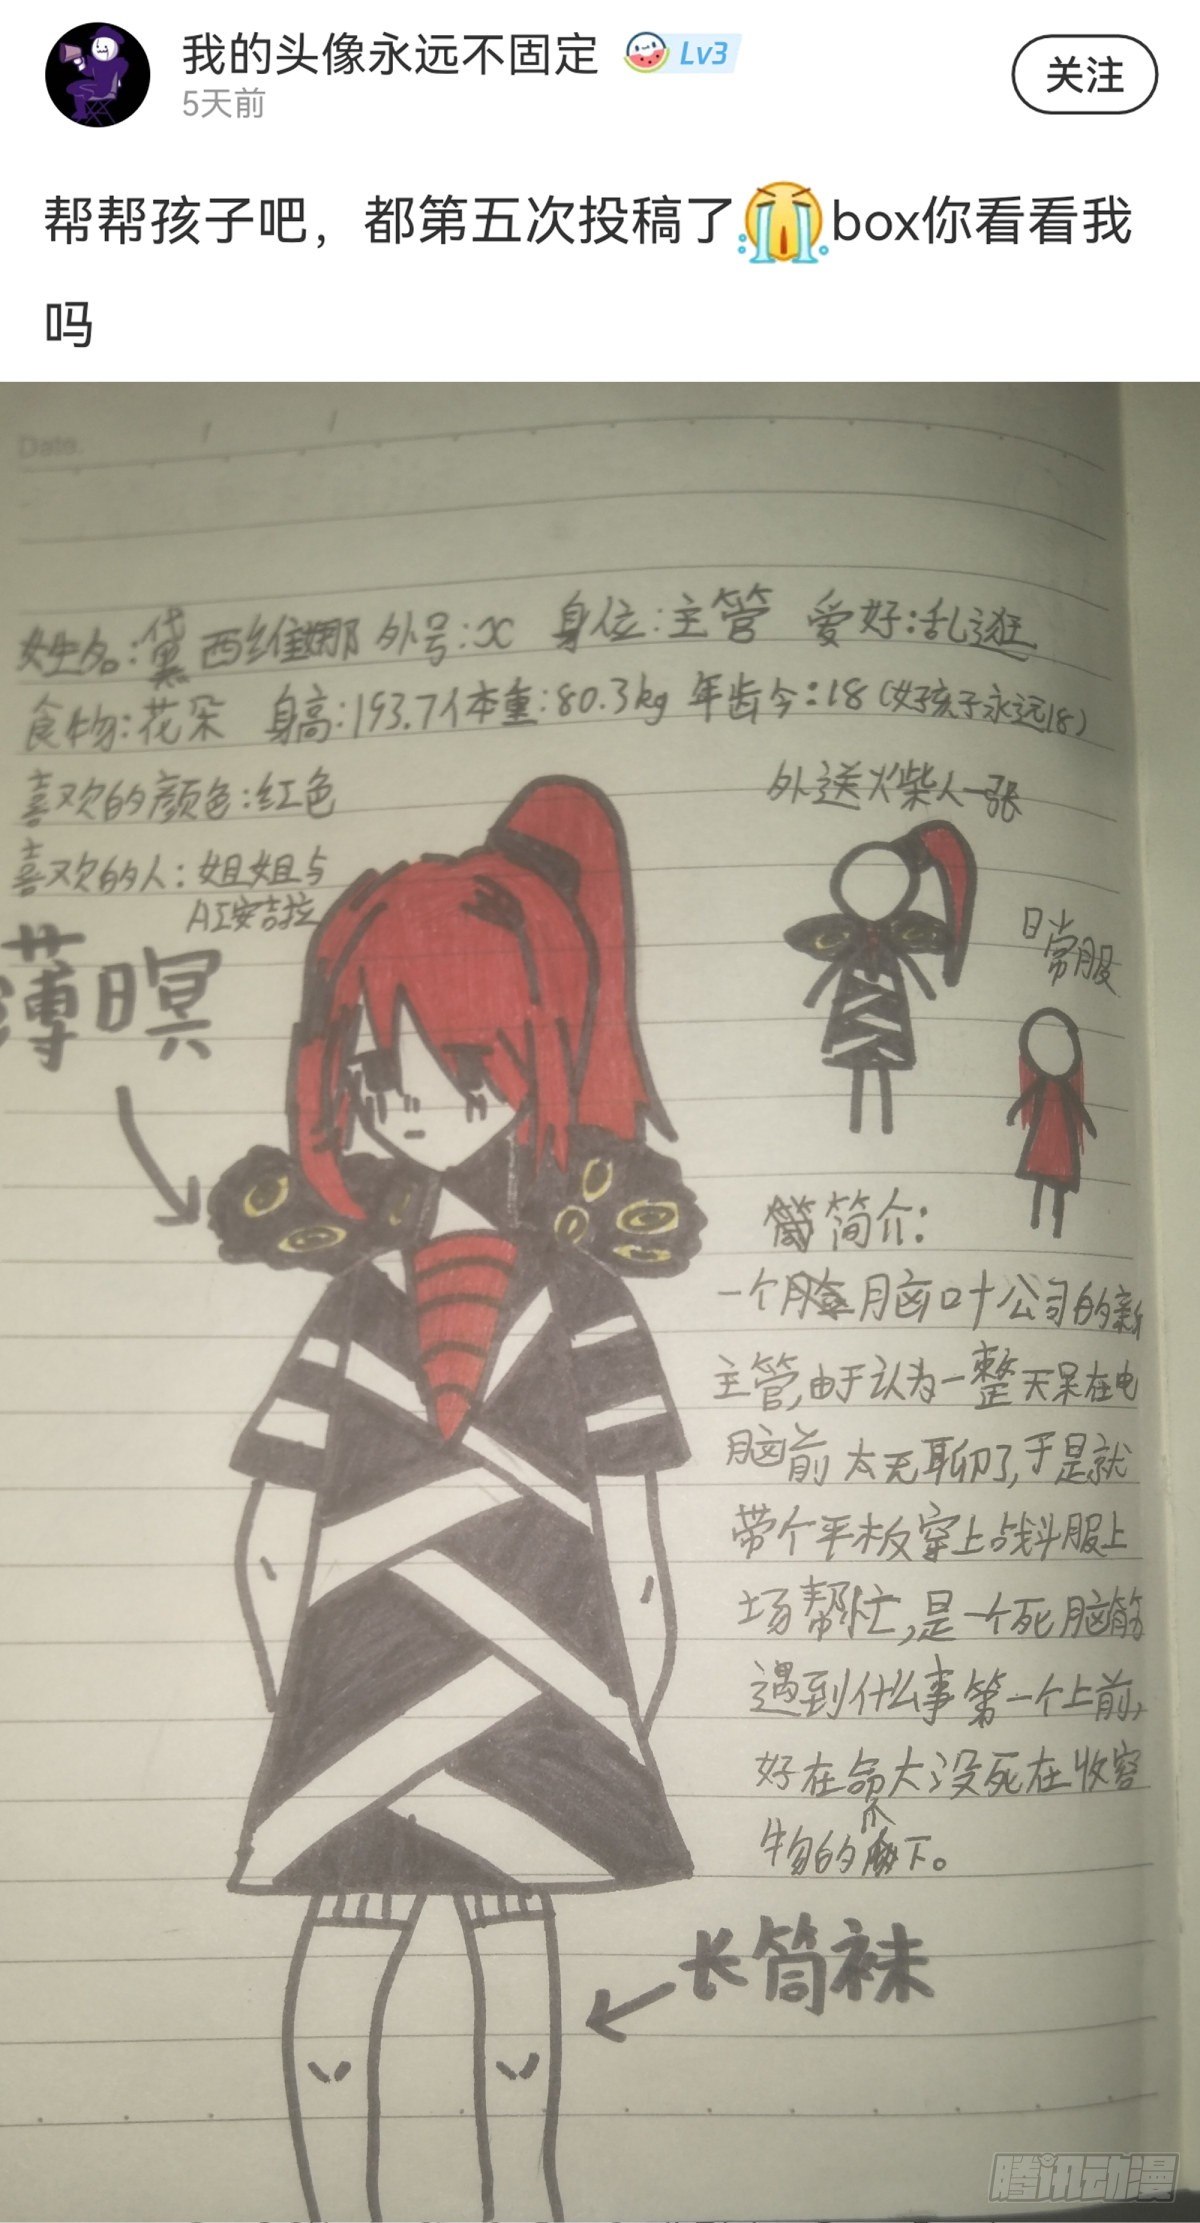 我的头像永远不固定 Lv3
5天前
关注
帮帮孩子吧，都第五次投稿了😭box你看看我
吗
Date.
姓名:黛西维娜 外号:x 身位:主管 爱好:乱逛
食物:花朵 身高:193.7 体重:80.3kg 年龄今:18(女孩子永远18)
喜欢的颜色:红色
喜欢的人:姐姐与
AI安吉拉
薄暝
外送火柴人一张
日常服
简介:
一个脑叶公司的新
主管,由于认为一整天呆在电
脑前太无聊了,于是就
带个平板穿上战斗服上
场帮忙,是一个死脑筋
遇到什么事第一个上前,
好在命大没死在收容
物的爪下。
长筒袜
腾讯动漫